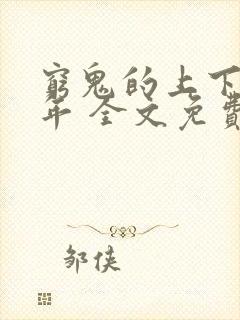 窮鬼的上下
年 全文免費
邹侠